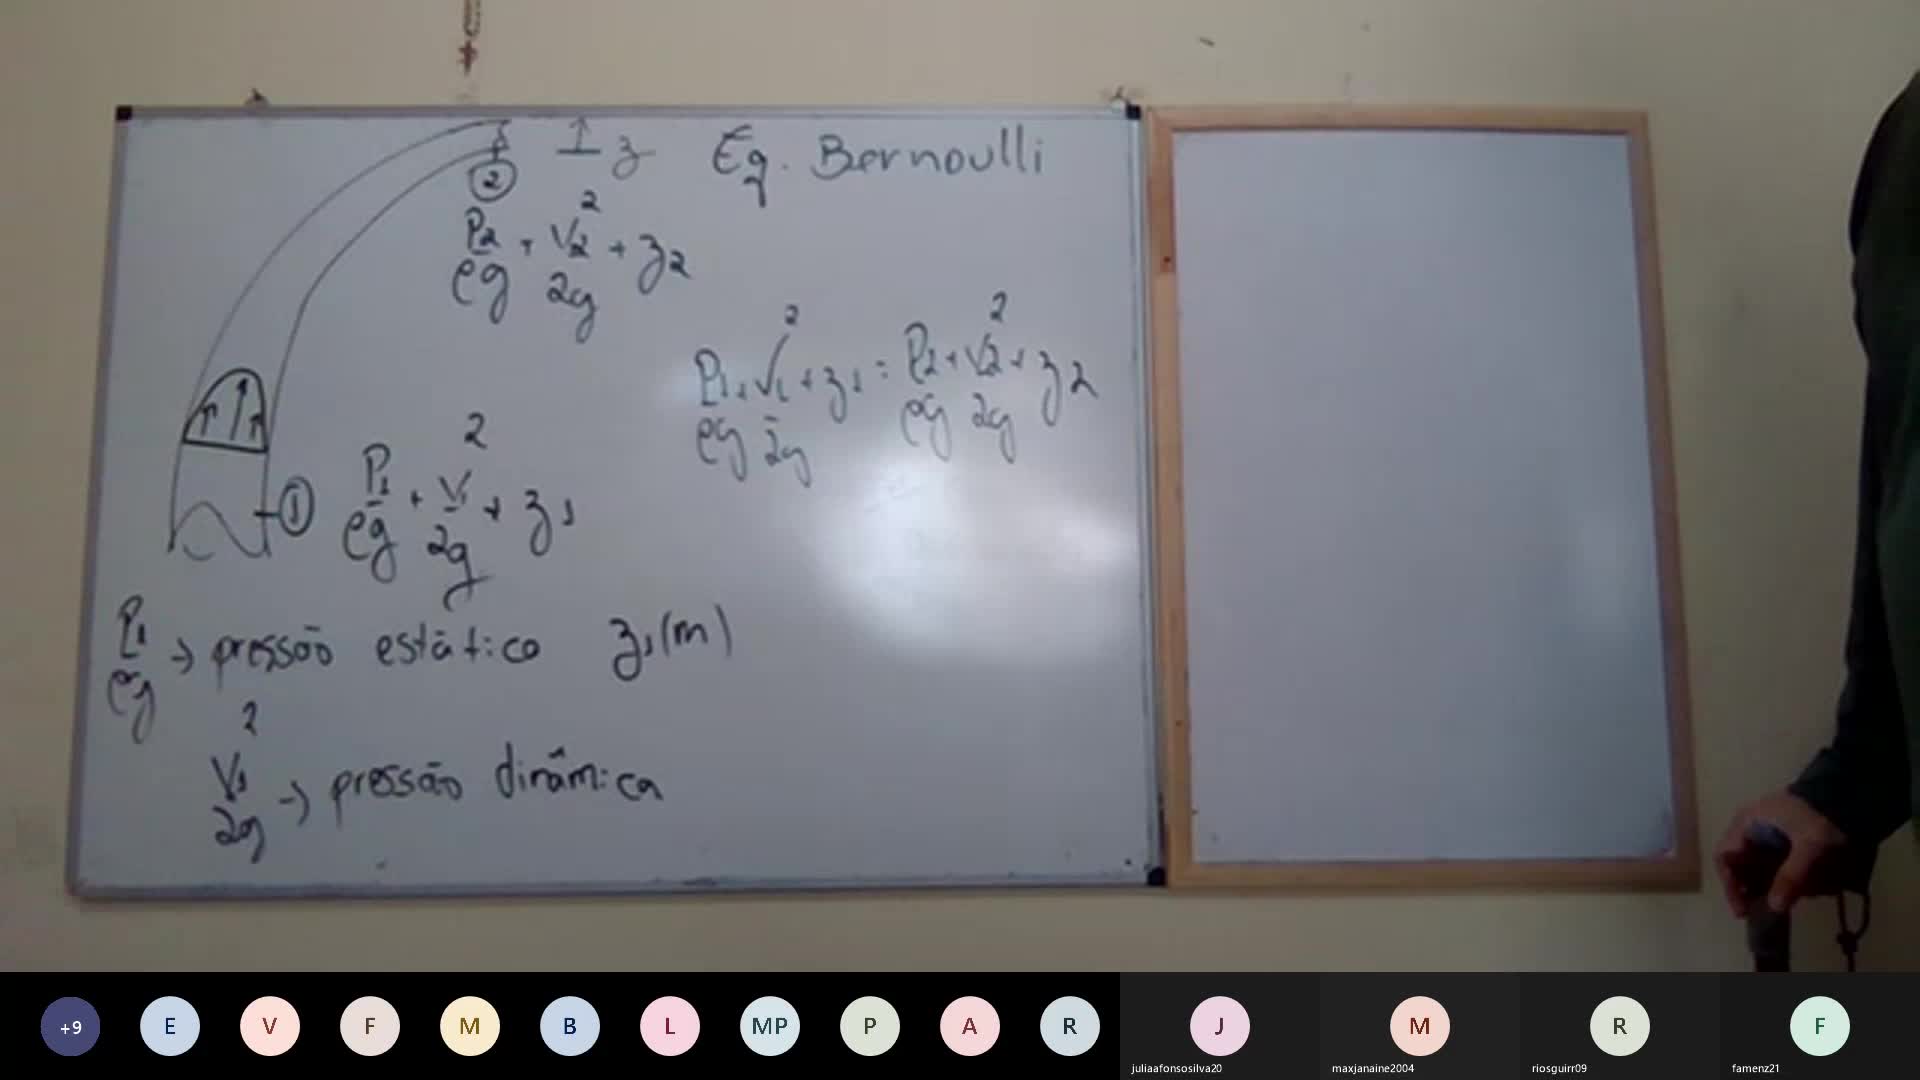 z Eq. Bernoulli
2
P2/ρg + V2²/2g + z2
P1/ρg + V1²/2g + z1 = P2/ρg + V2²/2g + z2
1 P1/ρg + V1²/2g + z1
P1/ρg → pressão estática z1(m)
V1²/2g → pressão dinâmica
+9 E V F M B L MP P A R J M R F
juliaafonsosilva20 maxjanaine2004 riosguirr09 famenz21